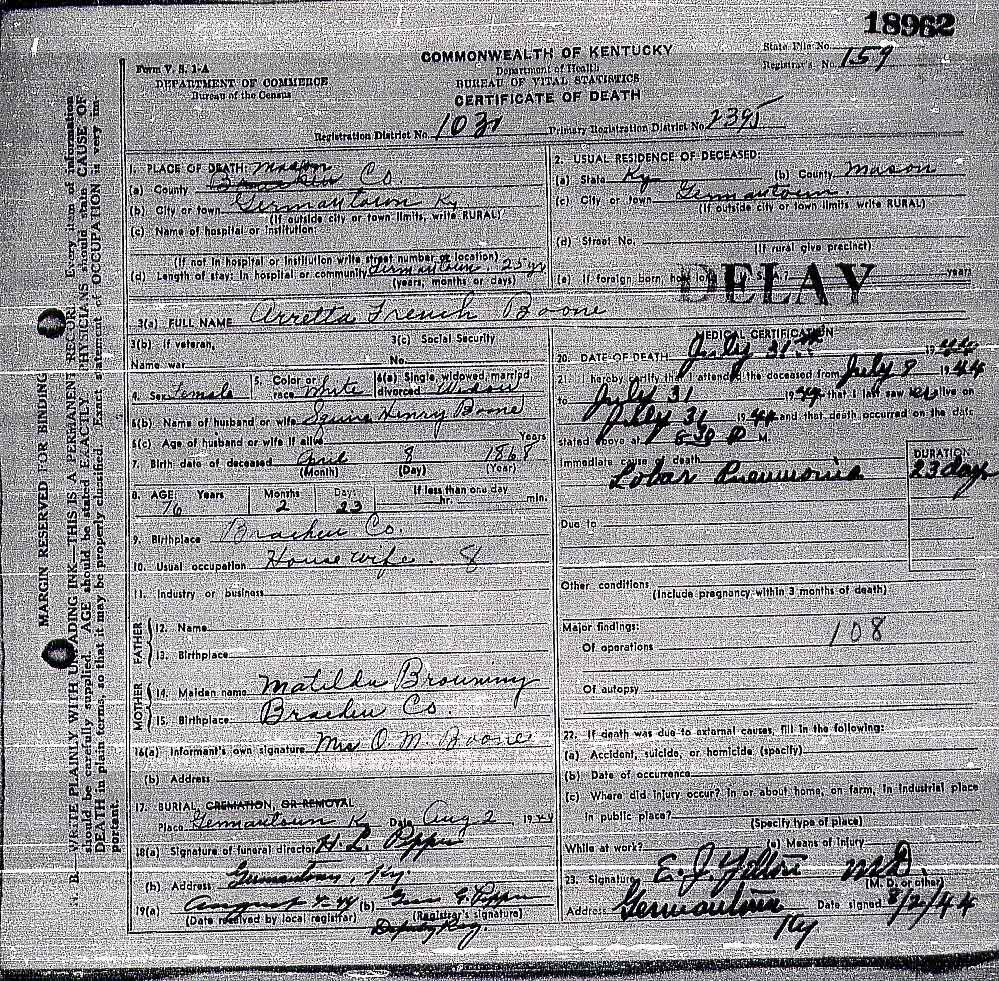 18962
State File No.
Registrar's No. 159
Form V. S. 1-A
DEPARTMENT OF COMMERCE
Bureau of the Census
COMMONWEALTH OF KENTUCKY
Department of Health
BUREAU OF VITAL STATISTICS
CERTIFICATE OF DEATH
Registration District No. 1031 Primary Registration District No. 2395
MARGIN RESERVED FOR BINDING
N. B.—WRITE PLAINLY WITH UNFADING INK—THIS IS A PERMANENT RECORD. Every item of information
should be carefully supplied. AGE should be stated EXACTLY. PHYSICIANS should state CAUSE OF
DEATH in plain terms, so that it may be properly classified. Exact statement of OCCUPATION is very im-
portant.
1. PLACE OF DEATH: Mason
(a) County Bracken Co.
(b) City or town Germantown Ky
(If outside city or town limits, write RURAL)
(c) Name of hospital or institution:
(If not in hospital or institution write street number or location)
(d) Length of stay: In hospital or community Germantown. 25 yr
(years, months or days)
2. USUAL RESIDENCE OF DECEASED
(a) State Ky (b) County Mason
(c) City or town Germantown.
(If outside city or town limits write RURAL)
(d) Street No.
(If rural give precinct)
(e) If foreign born, how long in U. S.? years
DELAY
3(a) FULL NAME Arretta French Boone
3(b) If veteran, 3(c) Social Security
Name war No.
4. Sex Female 5. Color or race White 6(a) Single, widowed, married, divorced Widow
6(b) Name of husband or wife Squire Henry Boone
6(c) Age of husband or wife if alive Years
7. Birth date of deceased April 8 1868
(Month) (Day) (Year)
8. AGE: Years Months Days If less than one day
76 2 23 hr. min.
9. Birthplace Bracken Co.
10. Usual occupation House wife. 8
11. Industry or business
FATHER
12. Name
13. Birthplace
MOTHER
14. Maiden name Matilda Browning
15. Birthplace Bracken Co.
16(a) Informant's own signature Mrs O. M. Boone
(b) Address
17. BURIAL, CREMATION, OR REMOVAL
Place Germantown Ky Date Aug 2 1944
18(a) Signature of funeral director H. L. Pepper
(b) Address Germantown, Ky.
19(a) August 4-44 (b) G. Pepper
(Date received by local registrar) (Registrar's signature)
Deputy Reg.
MEDICAL CERTIFICATION
20. DATE OF DEATH July 31st 1944
21. I hereby certify that I attended the deceased from July 8 1944
to July 31 1944 that I last saw her alive on
July 31 1944 and that death occurred on the date
stated above at 6:30 P M.
Immediate cause of death DURATION
Lobar Pneumonia 23 days
Due to
Other conditions
(Include pregnancy within 3 months of death)
Major findings:
Of operations 108
Of autopsy
22. If death was due to external causes, fill in the following:
(a) Accident, suicide, or homicide (specify)
(b) Date of occurrence
(c) Where did injury occur? In or about home, on farm, in industrial place
in public place?
(Specify type of place)
While at work? (e) Means of Injury
23. Signature E. J. Yelton M.D.
(M. D. or other)
Address Germantown Date signed 8/2/44
Ky